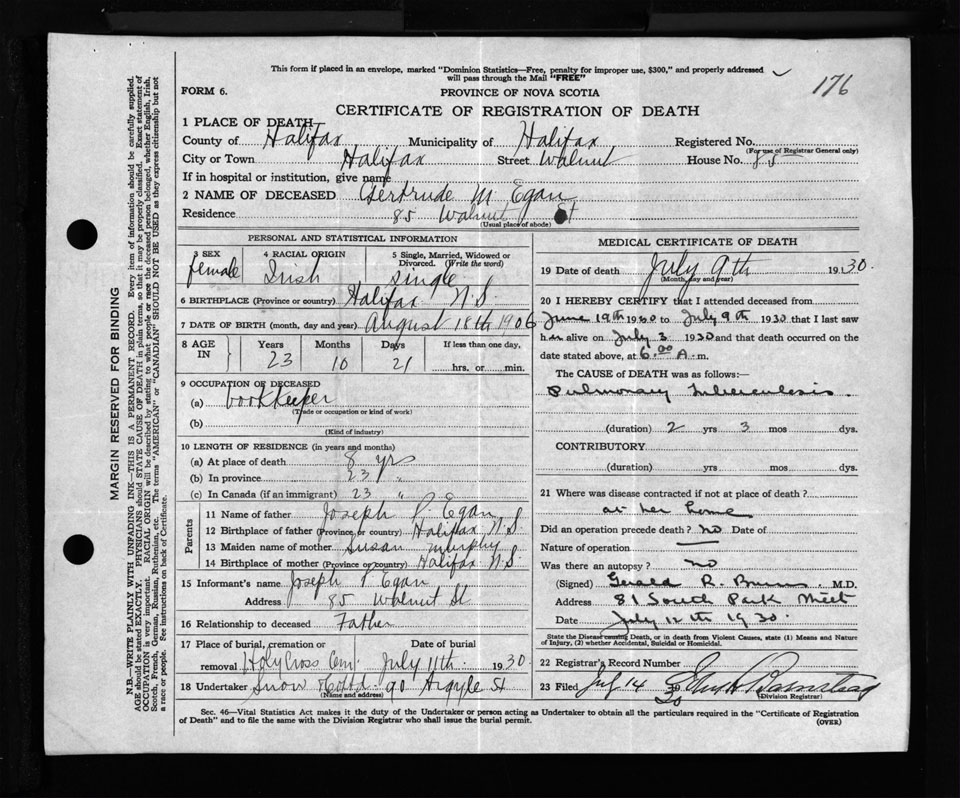 This form if placed in an envelope, marked "Dominion Statistics—Free, penalty for improper use, $300," and properly addressed
will pass through the Mail "FREE"
176
FORM 6.
PROVINCE OF NOVA SCOTIA
CERTIFICATE OF REGISTRATION OF DEATH
1 PLACE OF DEATH
County of Halifax Municipality of Halifax Registered No.
(For use of Registrar General only)
City or Town Halifax Street Walnut House No. 85
If in hospital or institution, give name
2 NAME OF DECEASED Gertrude M Egan
Residence 85 Walnut St
(Usual place of abode)
PERSONAL AND STATISTICAL INFORMATION
3 SEX female
4 RACIAL ORIGIN Irish
5 Single, Married, Widowed or Divorced. (Write the word) single
6 BIRTHPLACE (Province or country) Halifax N.S.
7 DATE OF BIRTH (month, day and year) August 18th 1906
8 AGE IN Years 23 Months 10 Days 21 If less than one day, hrs. or min.
9 OCCUPATION OF DECEASED
(a) bookkeeper
(Trade or occupation or kind of work)
(b)
(Kind of industry)
10 LENGTH OF RESIDENCE (in years and months)
(a) At place of death 8 yrs
(b) In province 23 "
(c) In Canada (if an immigrant) 23 "
Parents
11 Name of father Joseph P. Egan
12 Birthplace of father (Province or country) Halifax N.S.
13 Maiden name of mother Susan Murphy
14 Birthplace of mother (Province or country) Halifax N.S.
15 Informant's name Joseph P Egan
Address 85 Walnut St
16 Relationship to deceased Father
17 Place of burial, cremation or removal Holy Cross Cem. Date of burial July 11th 1930.
18 Undertaker Snow 90 Argyle St
(Name and address)
MEDICAL CERTIFICATE OF DEATH
19 Date of death July 9th 1930.
(Month, day and year)
20 I HEREBY CERTIFY that I attended deceased from
June 19th 1930 to July 9th 1930 that I last saw
her alive on July 3 1930 and that death occurred on
date stated above, at 6.00 A.m.
The CAUSE of DEATH was as follows:—
Pulmonary Tuberculosis.
(duration) 2 yrs 3 mos dys.
CONTRIBUTORY
(duration) yrs mos dys.
21 Where was disease contracted if not at place of death?
at her home
Did an operation precede death? no Date of
Nature of operation —
Was there an autopsy? no
(Signed) Gerald R. Burns M.D.
Address 81 South Park Street
Date July 12th 1930.
State the Disease causing Death, or in death from Violent Causes, state (1) Means and Nature
of Injury, (2) whether Accidental, Suicidal or Homicidal.
22 Registrar's Record Number
23 Filed July 14 30
(Division Registrar)
Sec. 46—Vital Statistics Act makes it the duty of the Undertaker or person acting as Undertaker to obtain all the particulars required in the "Certificate of Registration
of Death" and to file the same with the Division Registrar who shall issue the burial permit.
(OVER)
MARGIN RESERVED FOR BINDING
N.B.—WRITE PLAINLY WITH UNFADING INK—THIS IS A PERMANENT RECORD. Every item of information should be carefully supplied.
AGE should be stated EXACTLY. PHYSICIANS should STATE CAUSE OF DEATH in plain terms, so that it may be properly classified. Exact statement of
OCCUPATION is very important. RACIAL ORIGIN will be described by stating to what people or race the deceased person belonged, whether English, Irish,
Scotch, French, German, Russian, Ruthenian, etc. The terms "AMERICAN" or "CANADIAN" SHOULD NOT BE USED as they express citizenship but not
a race or people. See instructions on back of Certificate.